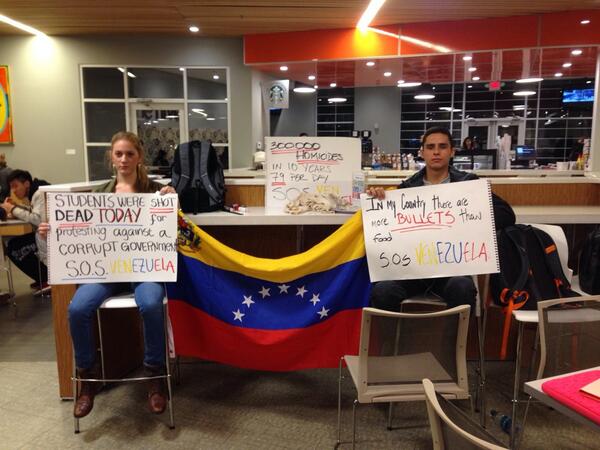 STUDENTS WERE SHOT
DEAD TODAY for
protesting against a
CORRUPT GOVERNMENT
S.O.S. VENEZUELA
300000
HOMICIDES
IN 10 YEARS
79 PER DAY
S.O.S VEN
In my Country there are
more BULLETS than
food
SOS VENEZUELA.